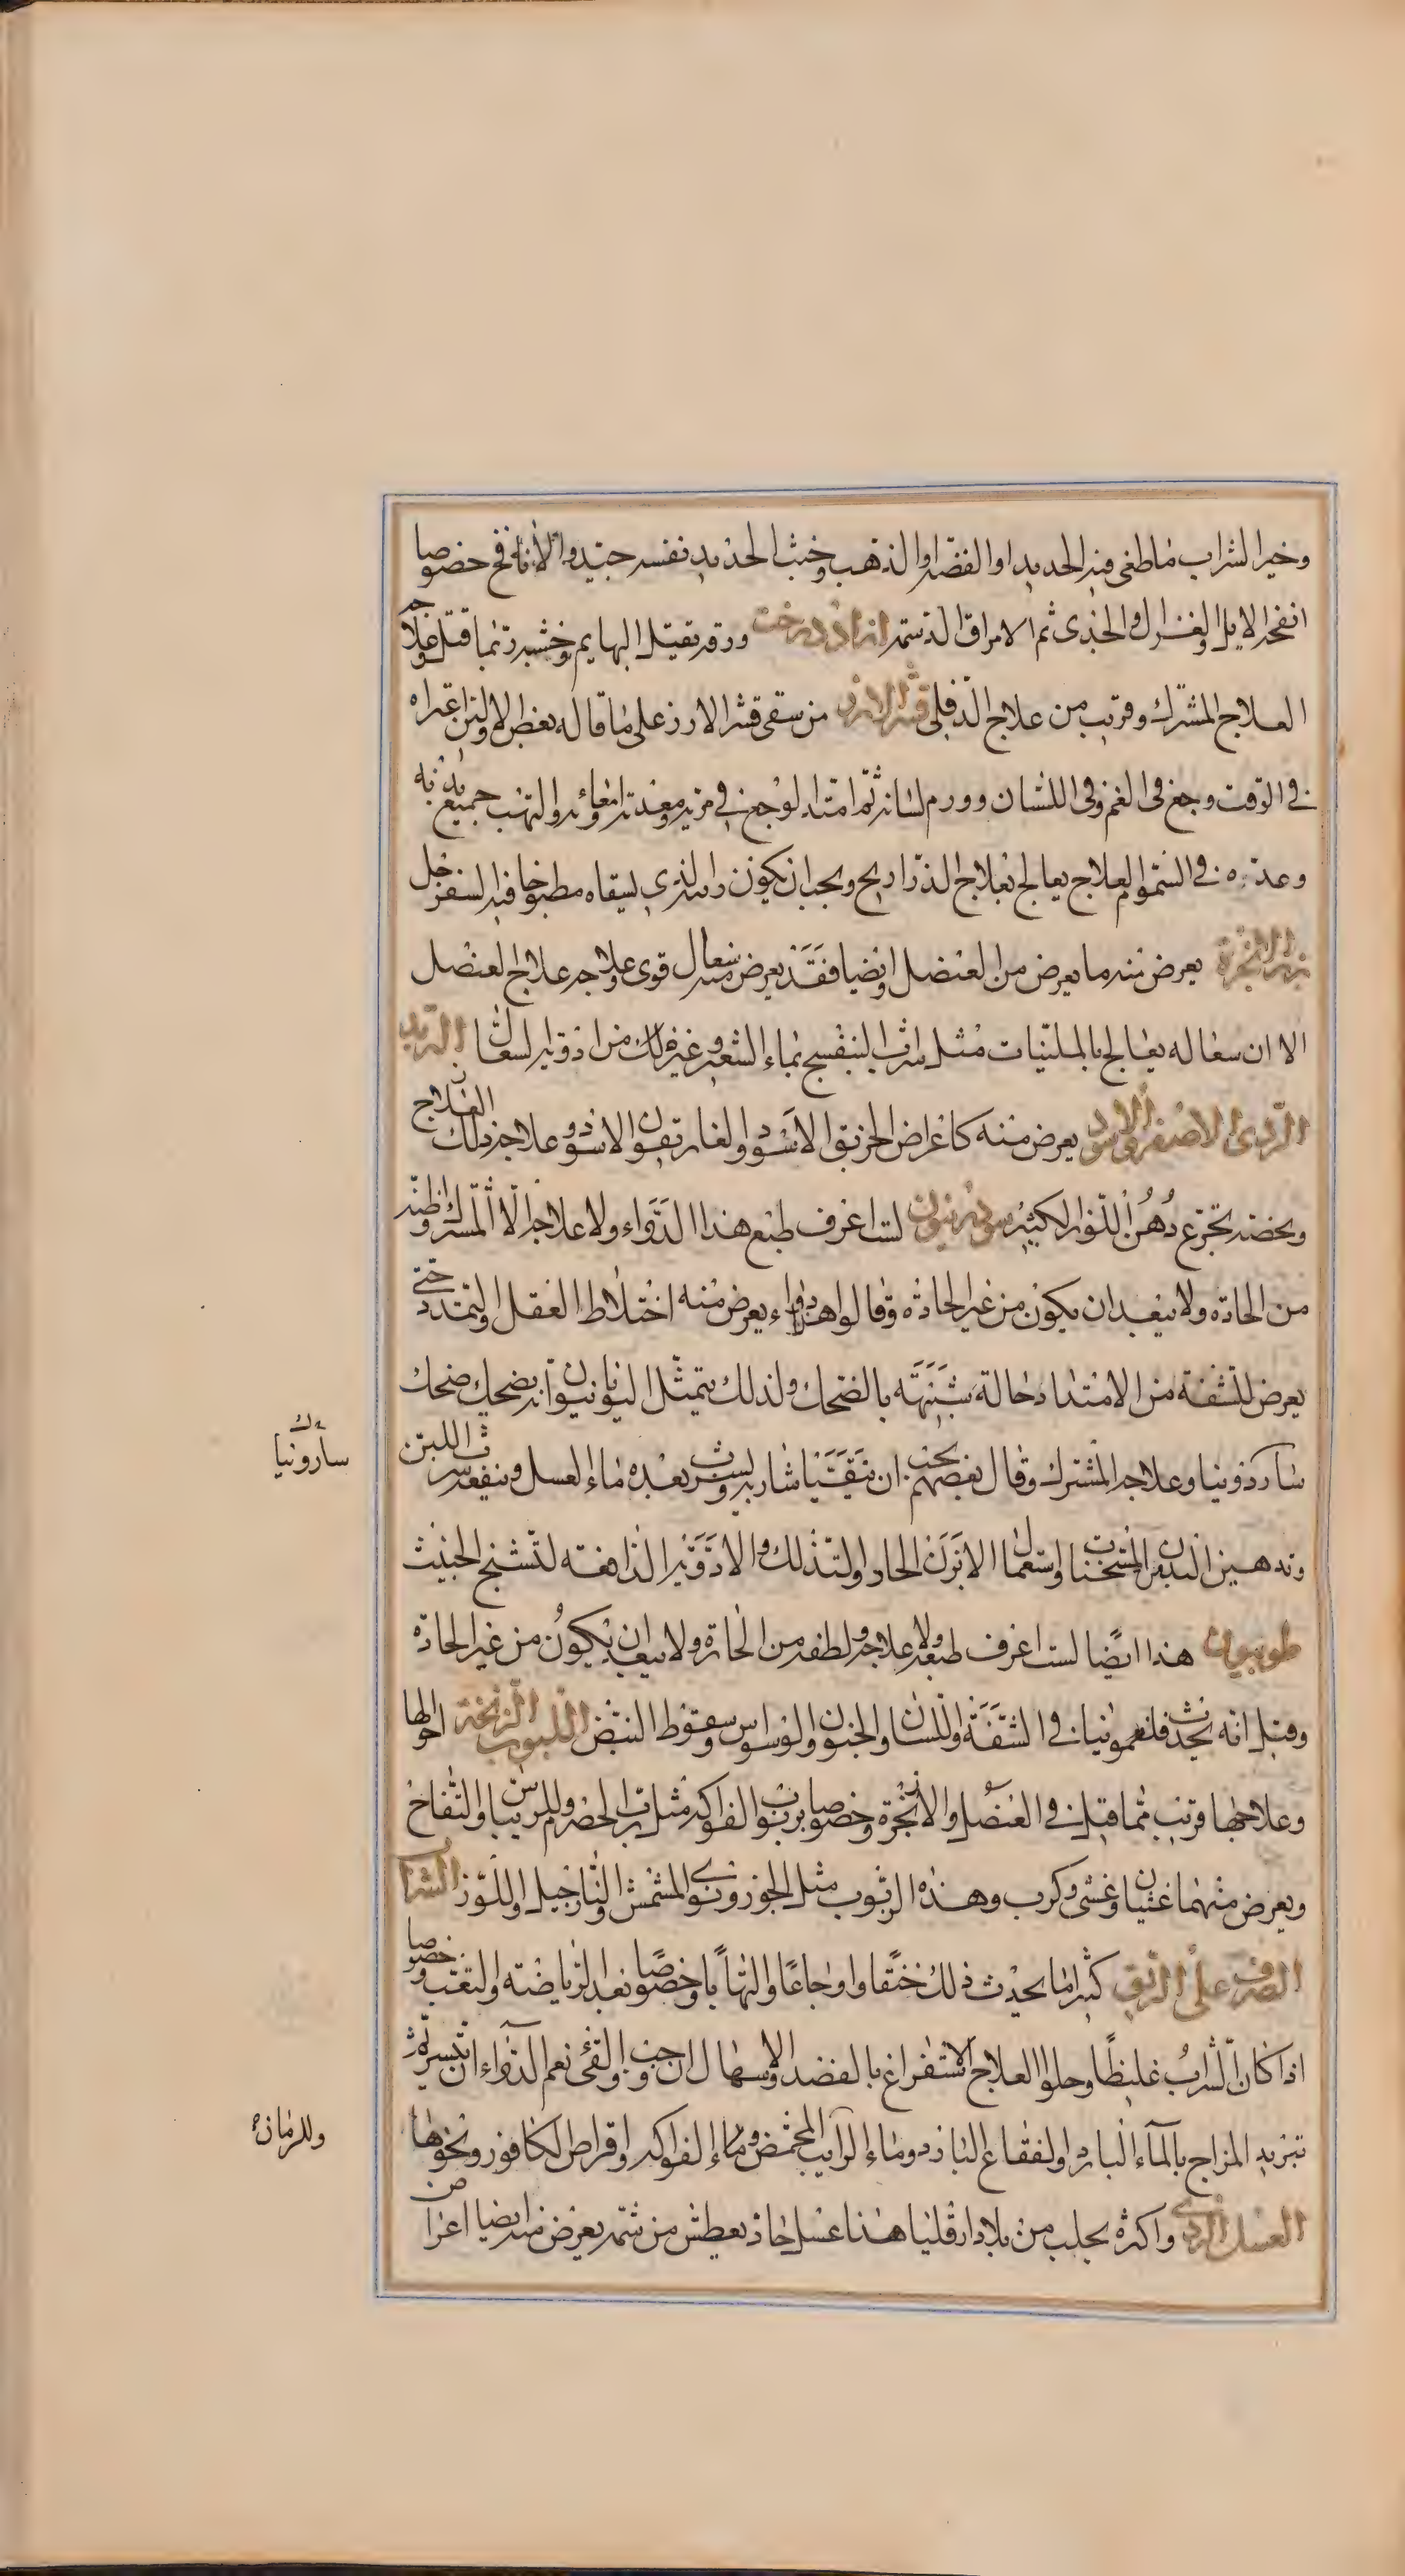 وخير الشراب ماطفى فيه الحديد او الفضة او الذهب وخبث الحديد نفسه جيد والانافح خصوصا
انفحة الايل والغزال والجدى ثم الامراق الدسمة ازاددرخت ورقه يقتل البهايم وخشبه ربما قتل وعلاجه
العلاج المشترك وقريب من علاج الدفلى قشر الارز من سقى قشر الارز على ما قاله بعض الاولين اعتراه
فى الوقت وجع فى الفم وفى اللسان وورم لسانه ثم امتد الوجع فى مريه ومعدته وامعائه والتهب جميع بدنه
وعدّه فى السموم العلاج يعالج بعلاج الذراريح ويجب ان يكون الذى يسقاه مطبوخا فيه السفرجل
بزر الانجرة يعرض منه ما يعرض من العنصل وايضا فقد يعرض منه سعال قوى وعلاجه علاج العنصل
الا ان سعاله يعالج بالملينات مثل شراب البنفسج بماء الشعير وغير ذلك من ادوية السعال التربد
الردى الاصفر والاسود يعرض منه كاعراض الخربق الاسود والغاريقون الاسود وعلاجه ذلك العلاج
ويخصه تجرع دهن اللوز الكثير سوذريون لست اعرف طبع هذا الدواء ولا علاجه الا المشترك واظنه
من الحادة ولا يبعد ان يكون من غير الحادة وقالوا هو دواء يعرض منه اختلاط العقل والتمدد حتى
يعرض للشفة من الامتداد حالة شبيهة بالضحك ولذلك يتمثل اليونانيون انه يضحك ضحك
ساردونيا وعلاجه المشترك وقال بعضهم يجب ان يتقيأ شاربه ويشرب بعده ماء العسل وينفعه شرب اللبن
وتدهين البدن بالمسخنات واستعمال الابزن الحار والتدلك والادوية الدافعة لتشنج الخبيث
طوبيون هذا ايضا لست اعرف طبعه ولا علاجه ولطفه من الحارة ولا يبعد ان يكون من غير الحادة
وقيل انه يحدث فلغمونيا فى الشفة واللسان والجنون والوسواس وسقوط النبض اللبوب الزنخة احوالها
وعلاجها قريب مما قيل فى العنصل والانجرة وخصوصا بربوب الفواكه مثل رب الحصرم وللريباس والتفاح
ويعرض منهما غثيان وغشى وكرب وهذه الربوب مثل الجوز ونوى المشمش والنارجيل واللوز الشراب
الصرف على الريق كثيرا ما يحدث ذلك خناقا واوجاعا والتهابا وخصوصا بعد الرياضة والتعب وخصوصا
اذا كان الشراب غليظا وحلوا العلاج الاستفراغ بالفصد والاسهال ان وجب والقى نعم الدواء ان تيسر ثم
تبريد المزاج بالمآء البارد والفقاع البارد وماء الرايب المحمض وماء الفواكه واقراص الكافور ونحوها
العسل الردى واكثره يجلب من بلاد ارقليا هذا عسل حاد يعطش من شمه يعرض منه ايضا اعراض
سارونيا
وللرمان